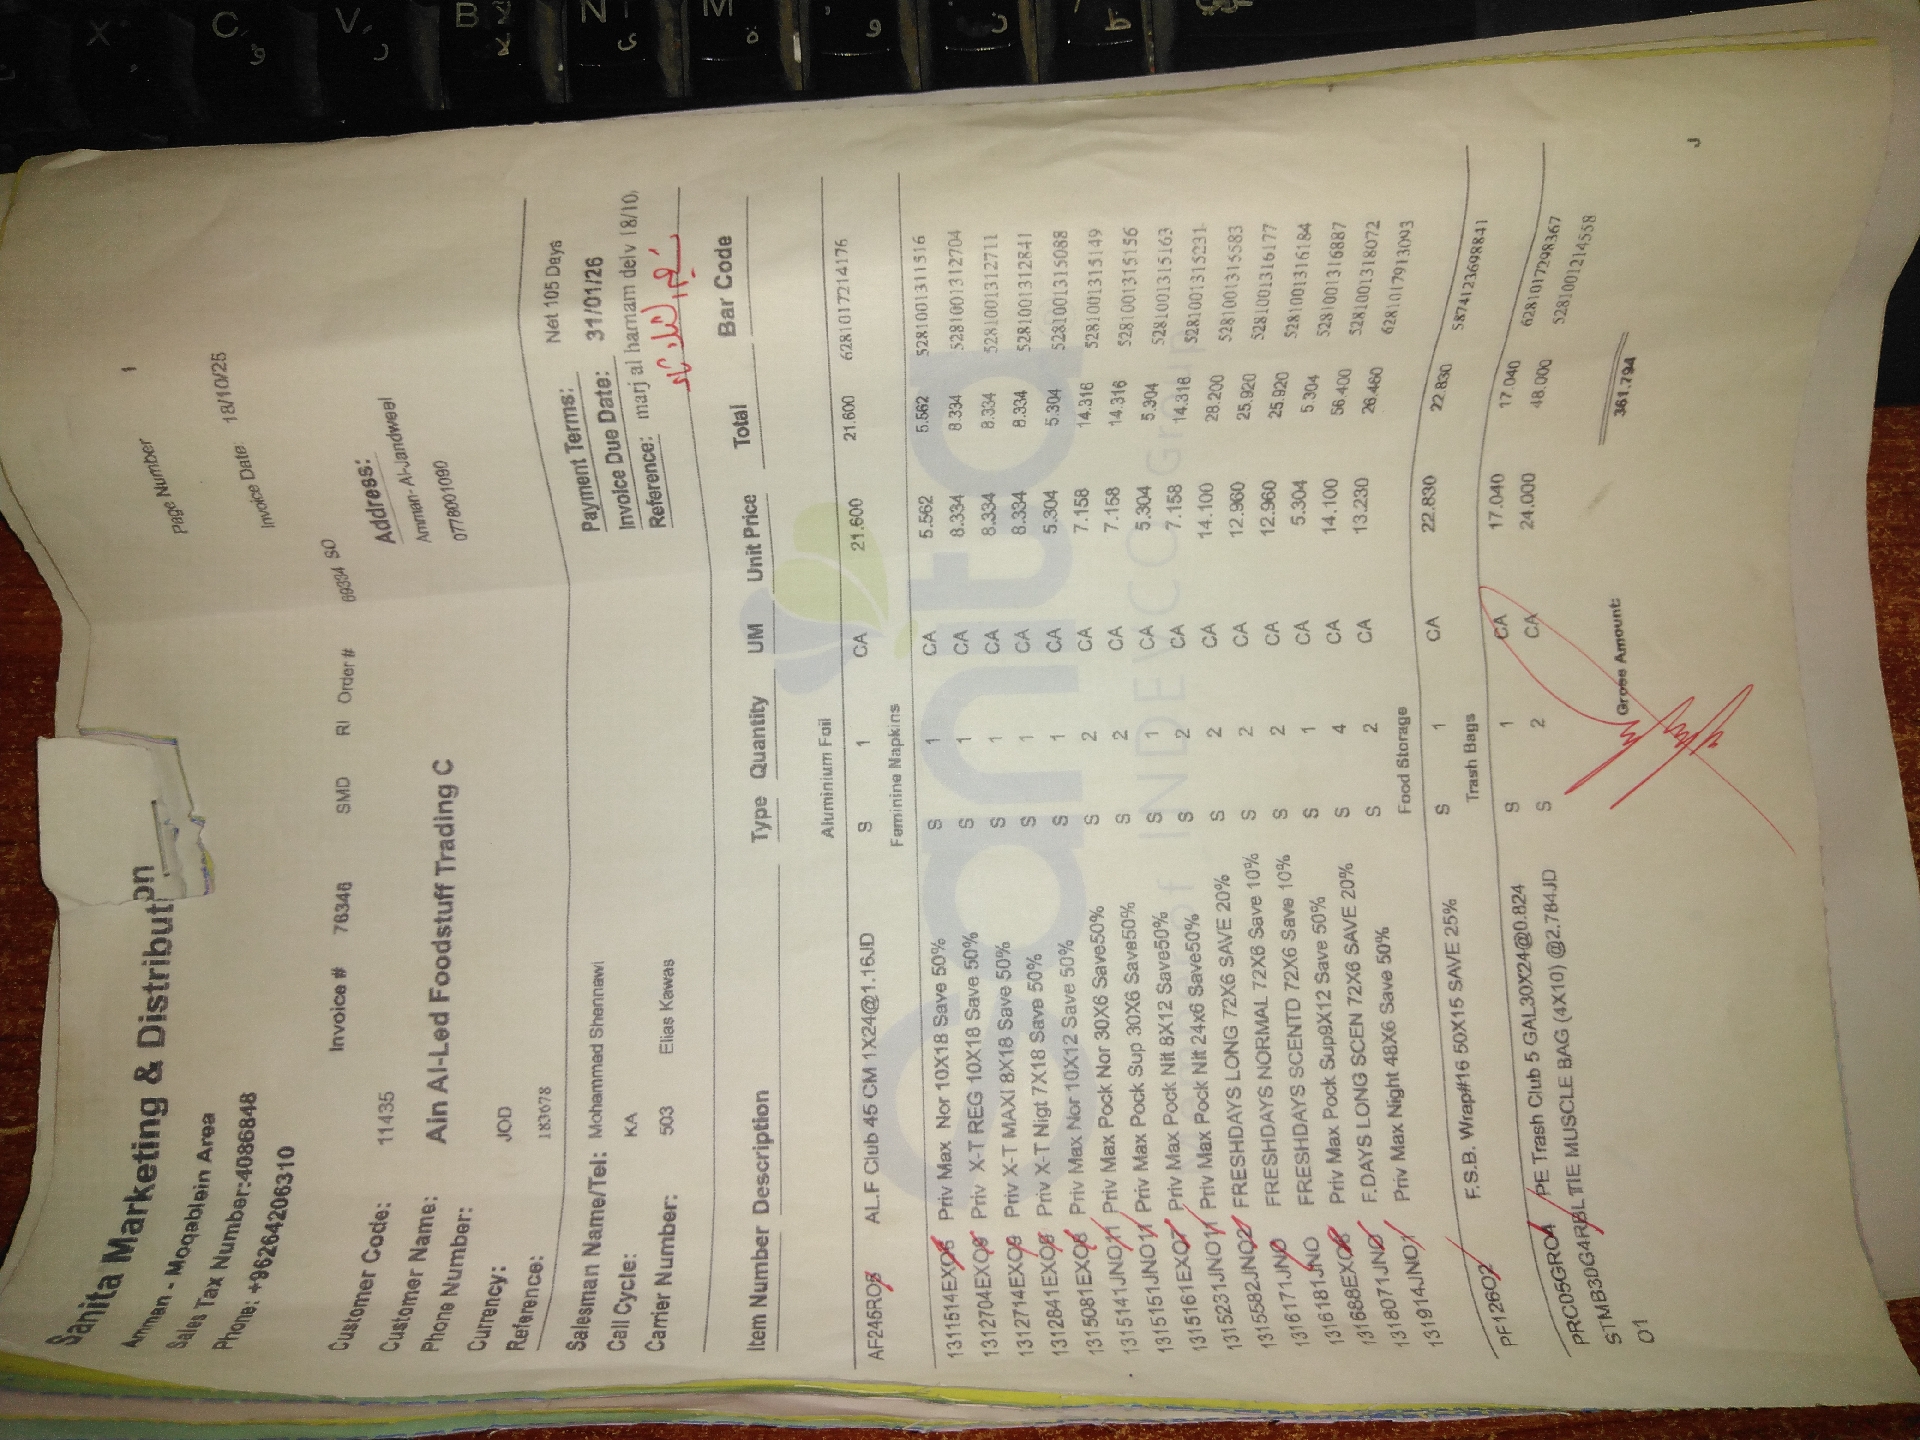 Sanita Marketing & Distribution
Amman - Moqablein Area
Sales Tax Number:4086848
Phone: +96264206310
Page Number 1
Invoice Date: 18/10/25
Invoice # 76346 SMD RI Order # 69334 SO
Customer Code: 11435
Customer Name: Ain Al-Led Foodstuff Trading C
Phone Number:
Currency: JOD
Reference: 183678
Address:
Amman- Al-Jandweel
0778001090
Salesman Name/Tel: Mohammad Shennawi
Call Cycle: KA
Carrier Number: 503 Elias Kawas
Payment Terms: Net 105 Days
Invoice Due Date: 31/01/26
Reference: marj al hamam delv 18/10,
Item Number Description Type Quantity UM Unit Price Total Bar Code
Aluminium Foil
AF245RO8 AL.F Club 45 CM 1X24@1.16JD S 1 CA 21.600 21.600 6281017214176
Feminine Napkins
1311514EXO5 Priv Max Nor 10X18 Save 50% S 1 CA 5.562 5.562 5281001311516
1312704EXO9 Priv X-T REG 10X18 Save 50% S 1 CA 8.334 8.334 5281001312704
1312714EXO9 Priv X-T MAXI 8X18 Save 50% S 1 CA 8.334 8.334 5281001312711
1312841EXO8 Priv X-T Nigt 7X18 Save 50% S 1 CA 8.334 8.334 5281001312841
1315081EXO8 Priv Max Nor 10X12 Save 50% S 1 CA 5.304 5.304 5281001315088
1315141JNO11 Priv Max Pock Nor 30X6 Save50% S 2 CA 7.158 14.316 5281001315149
1315151JNO11 Priv Max Pock Sup 30X6 Save50% S 2 CA 7.158 14.316 5281001315156
1315161EXO7 Priv Max Pock Nit 8X12 Save50% S 1 CA 5.304 5.304 5281001315163
1315231JNO11 Priv Max Pock Nit 24x6 Save50% S 2 CA 7.158 14.316 5281001315231
1315582JNO2 FRESHDAYS LONG 72X6 SAVE 20% S 2 CA 14.100 28.200 5281001315583
1316171JNO FRESHDAYS NORMAL 72X6 Save 10% S 2 CA 12.960 25.920 5281001316177
1316181JNO FRESHDAYS SCENTD 72X6 Save 10% S 2 CA 12.960 25.920 5281001316184
131688EXO8 Priv Max Pock Sup9X12 Save 50% S 1 CA 5.304 5.304 5281001316887
1318071JNO F.DAYS LONG SCEN 72X6 SAVE 20% S 4 CA 14.100 56.400 5281001318072
131914JNO1 Priv Max Night 48X6 Save 50% S 2 CA 13.230 26.460 6281017913093
Food Storage
PF126O2 F.S.B. Wrap#16 50X15 SAVE 25% S 1 CA 22.830 22.830 5874123698841
Trash Bags
PRC05GRO4 PE Trash Club 5 GAL30X24@0.824 S 1 CA 17.040 17.040 6281017298367
STMB30G4RBL TIE MUSCLE BAG (4X10) @2.784JD S 2 CA 24.000 48.000 5281001214558
O1
Gross Amount: 361.794
sanita
member of INDEVCO Group